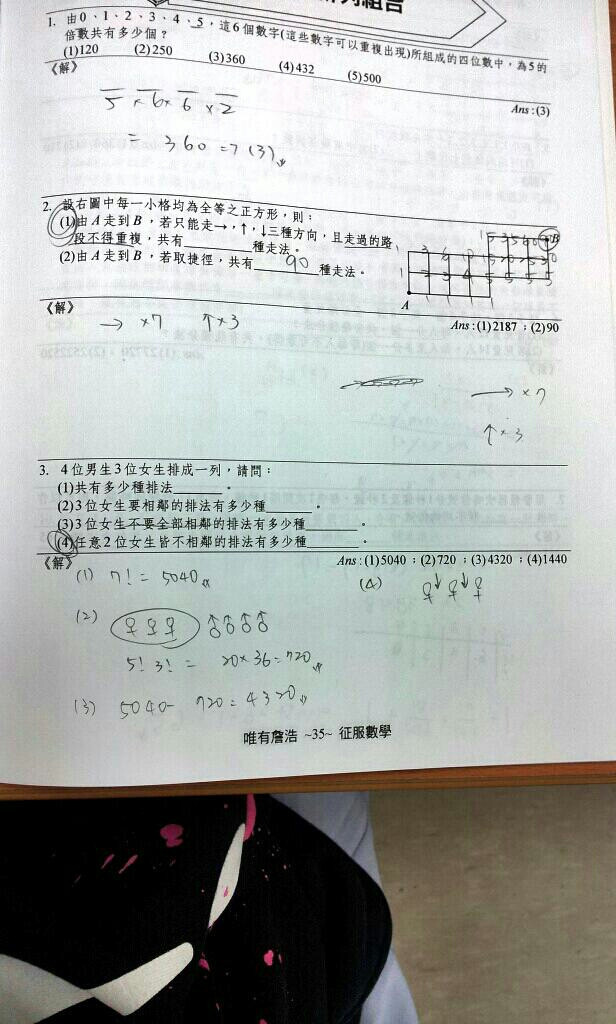 1. 由0、1、2、3、4、5,這6個數字(這些數字可以重複出現)所組成的四位數中,為5的
倍數共有多少個?
(1)120 (2)250 (3)360 (4)432 (5)500
《解》
Ans:(3)
5 × 6 × 6 × 2
= 360 => (3)
2. 設右圖中每一小格均為全等之正方形,則:
(1)由A走到B,若只能走→,↑,↓三種方向,且走過的路
段不得重複,共有________種走法。
(2)由A走到B,若取捷徑,共有 90 種走法。
B
A
《解》
Ans:(1)2187;(2)90
→ ×7 ↑×3
→ ×7
↑×3
3. 4位男生3位女生排成一列,請問:
(1)共有多少種排法________。
(2)3位女生要相鄰的排法有多少種________。
(3)3位女生不要全部相鄰的排法有多少種________。
(4)任意2位女生皆不相鄰的排法有多少種________。
《解》
Ans:(1)5040;(2)720;(3)4320;(4)1440
(1) 7! = 5040
(4) ♀↓♀↓♀
(2) ♀♀♀ ♂♂♂♂
5! 3! = 20×36=720
(3) 5040-720=4320
唯有詹浩 ~35~ 征服數學